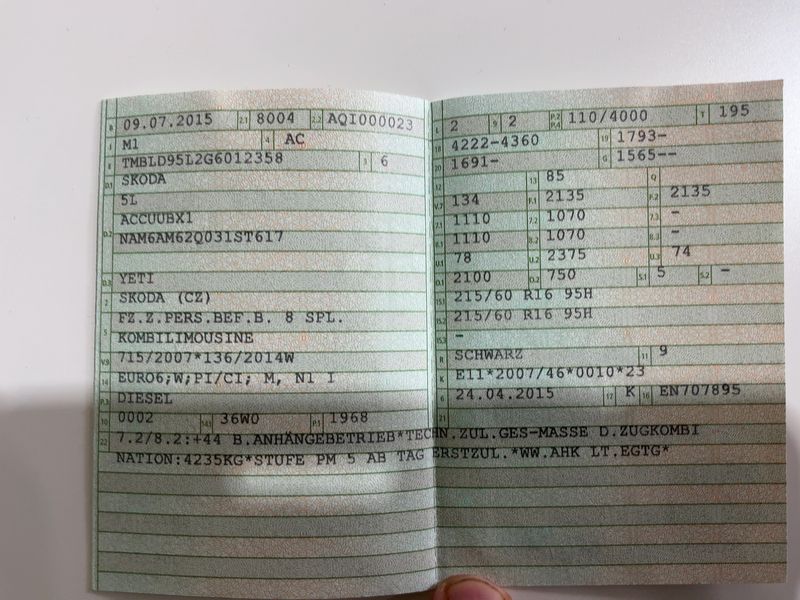 B 09.07.2015 2.1 8004 2.2 AQI000023
J M1 4 AC
E TMBLD95L2G6012358 3 6
D.1 SKODA
5L
D.2 ACCUUBX1
NAM6AM62Q031ST617
D.3 YETI
2 SKODA (CZ)
5 FZ.Z.PERS.BEF.B. 8 SPL.
KOMBILIMOUSINE
V.9 715/2007*136/2014W
14 EURO6;W;PI/CI; M, N1 I
P.3 DIESEL
10 0002 14.1 36W0 P.1 1968
L 2 9 2 P.2 P.4 110/4000 T 195
18 4222-4360 19 1793-
20 1691- G 1565--
12 13 85 Q
V.7 134 F.1 2135 F.2 2135
7.1 1110 7.2 1070 7.3 -
8.1 1110 8.2 1070 8.3 -
U.1 78 U.2 2375 U.3 74
O.1 2100 O.2 750 S.1 5 S.2 -
15.1 215/60 R16 95H
15.2 215/60 R16 95H
15.3 -
R SCHWARZ 11 9
K E11*2007/46*0010*23
6 24.04.2015 17 K 16 EN707895
21
22 7.2/8.2:+44 B.ANHÄNGEBETRIEB*TECHN.ZUL.GES-MASSE D.ZUGKOMBI
NATION:4235KG*STUFE PM 5 AB TAG ERSTZUL.*WW.AHK LT.EGTG*